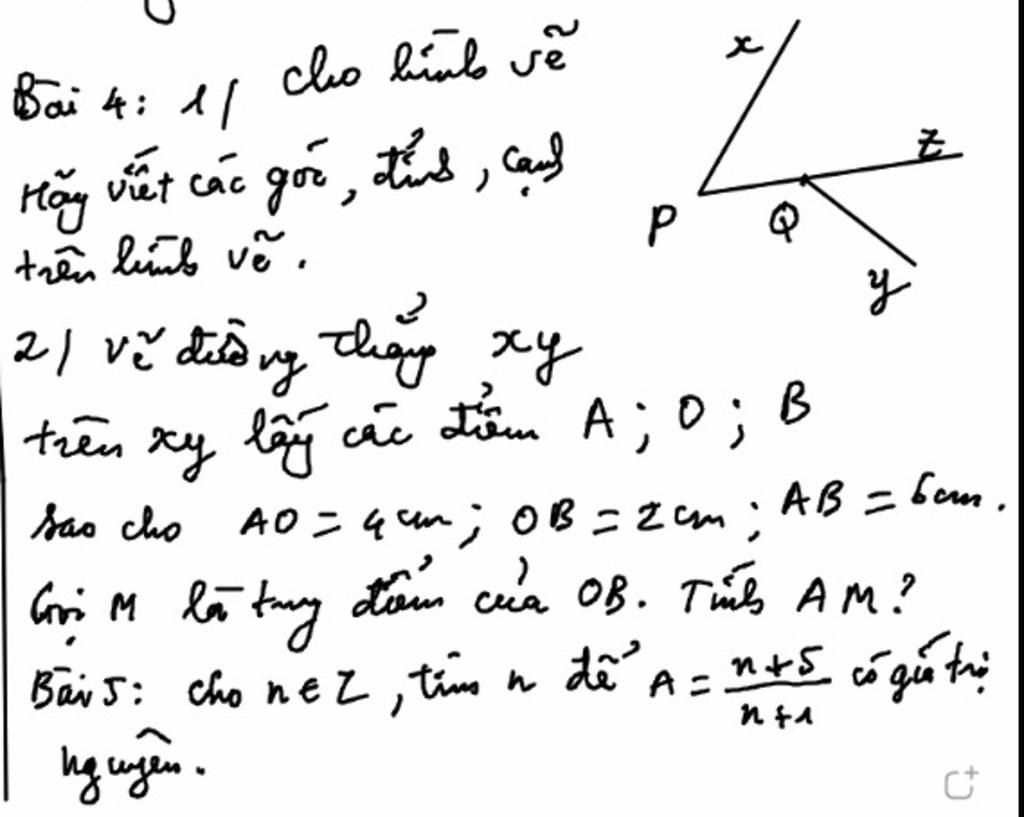 Bài 4: 1/ Cho hình vẽ
Hãy viết các góc, đỉnh, cạnh
trên hình vẽ.
x
z
P
Q
y
2/ Vẽ đường thẳng xy
trên xy lấy các điểm A; O; B
sao cho AO = 4cm; OB = 2cm; AB = 6cm.
Gọi M là trung điểm của OB. Tính AM?
Bài 5: cho n ∈ Z, tìm n để A = \frac{n+5}{n+1} có giá trị
nguyên.